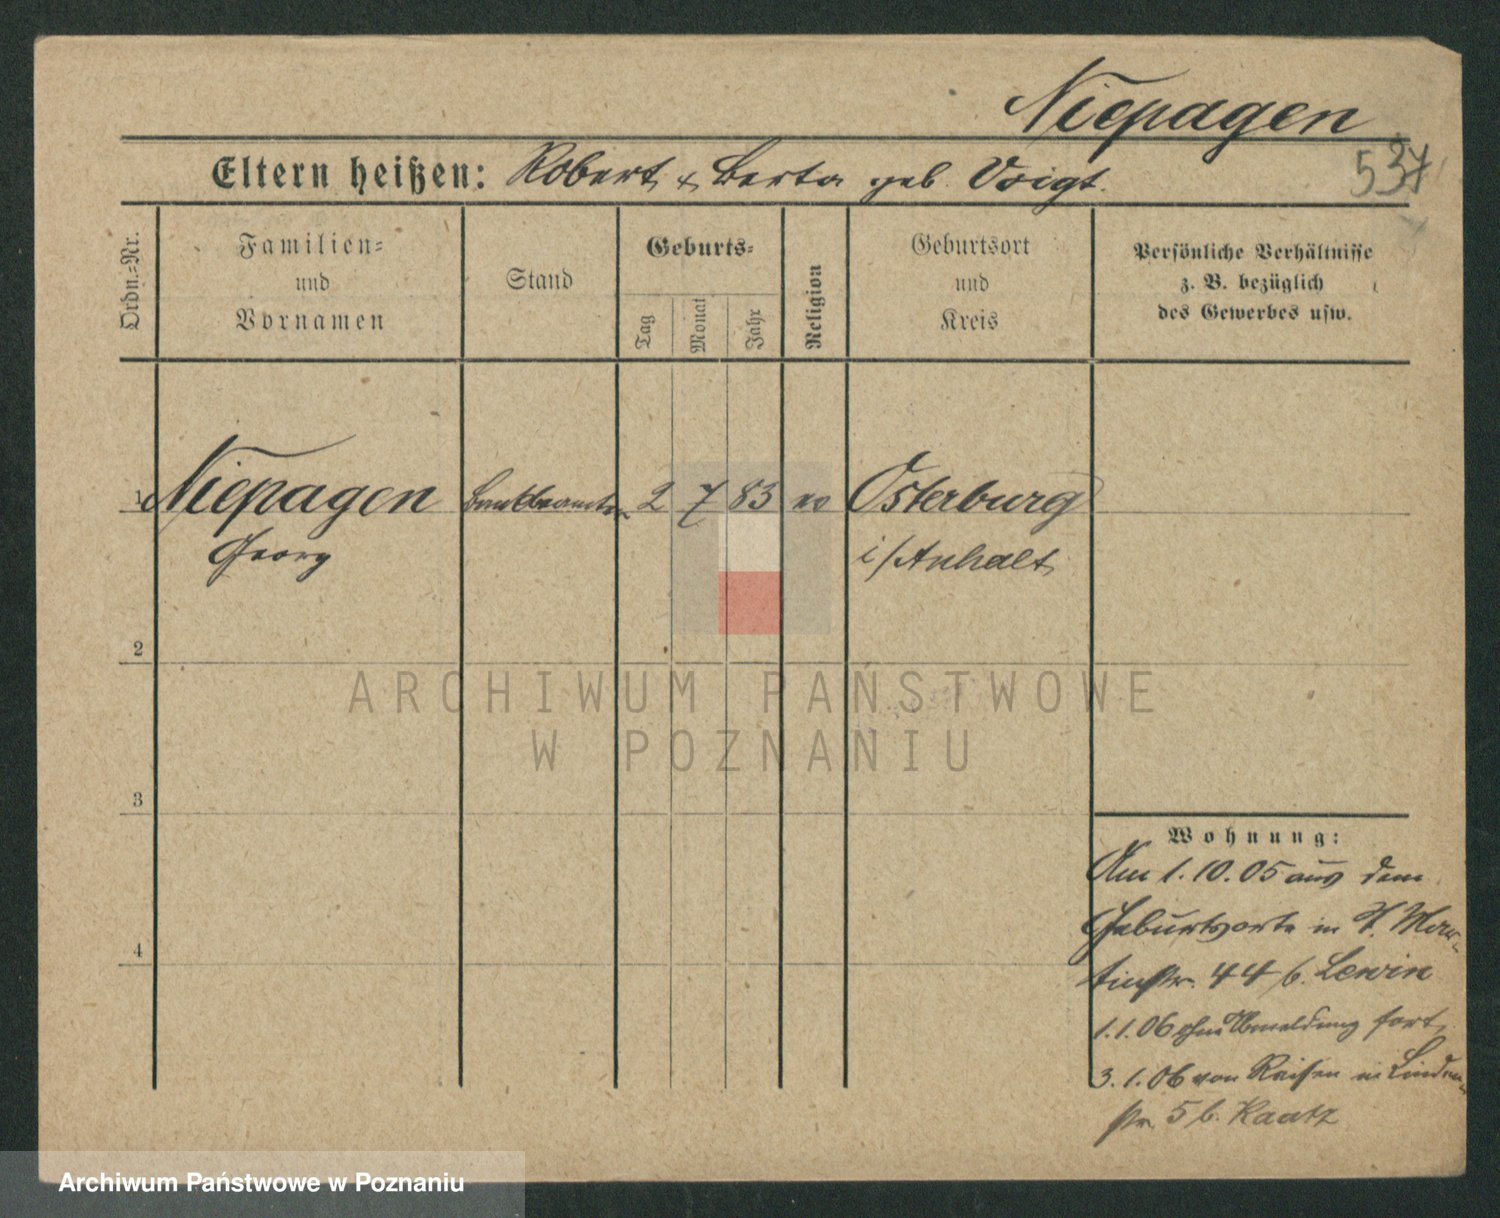 Niepagen
537
Eltern heißen: Robert & Berta geb. Voigt.
Ordn.=Nr.
Familien=
und
Vornamen
Stand
Geburts=
Tag
Monat
Jahr
Religion
Geburtsort
und
Kreis
Persönliche Verhältnisse
z. B. bezüglich
des Gewerbes usw.
1 Niepagen Bankbeamter 2 7 83 ev Osterburg
Georg i/Anhalt
2
3
4
Wohnung:
Am 1.10.05 aus dem
Geburtsorte in St. Mar-
tinstr. 44 b. Lewin
1.1.06 ohne Abmeldung fort,
3.1.06 von Reisen in Linden-
str. 5 b. Kaatz
ARCHIWUM PAŃSTWOWE
W POZNANIU
Archiwum Państwowe w Poznaniu